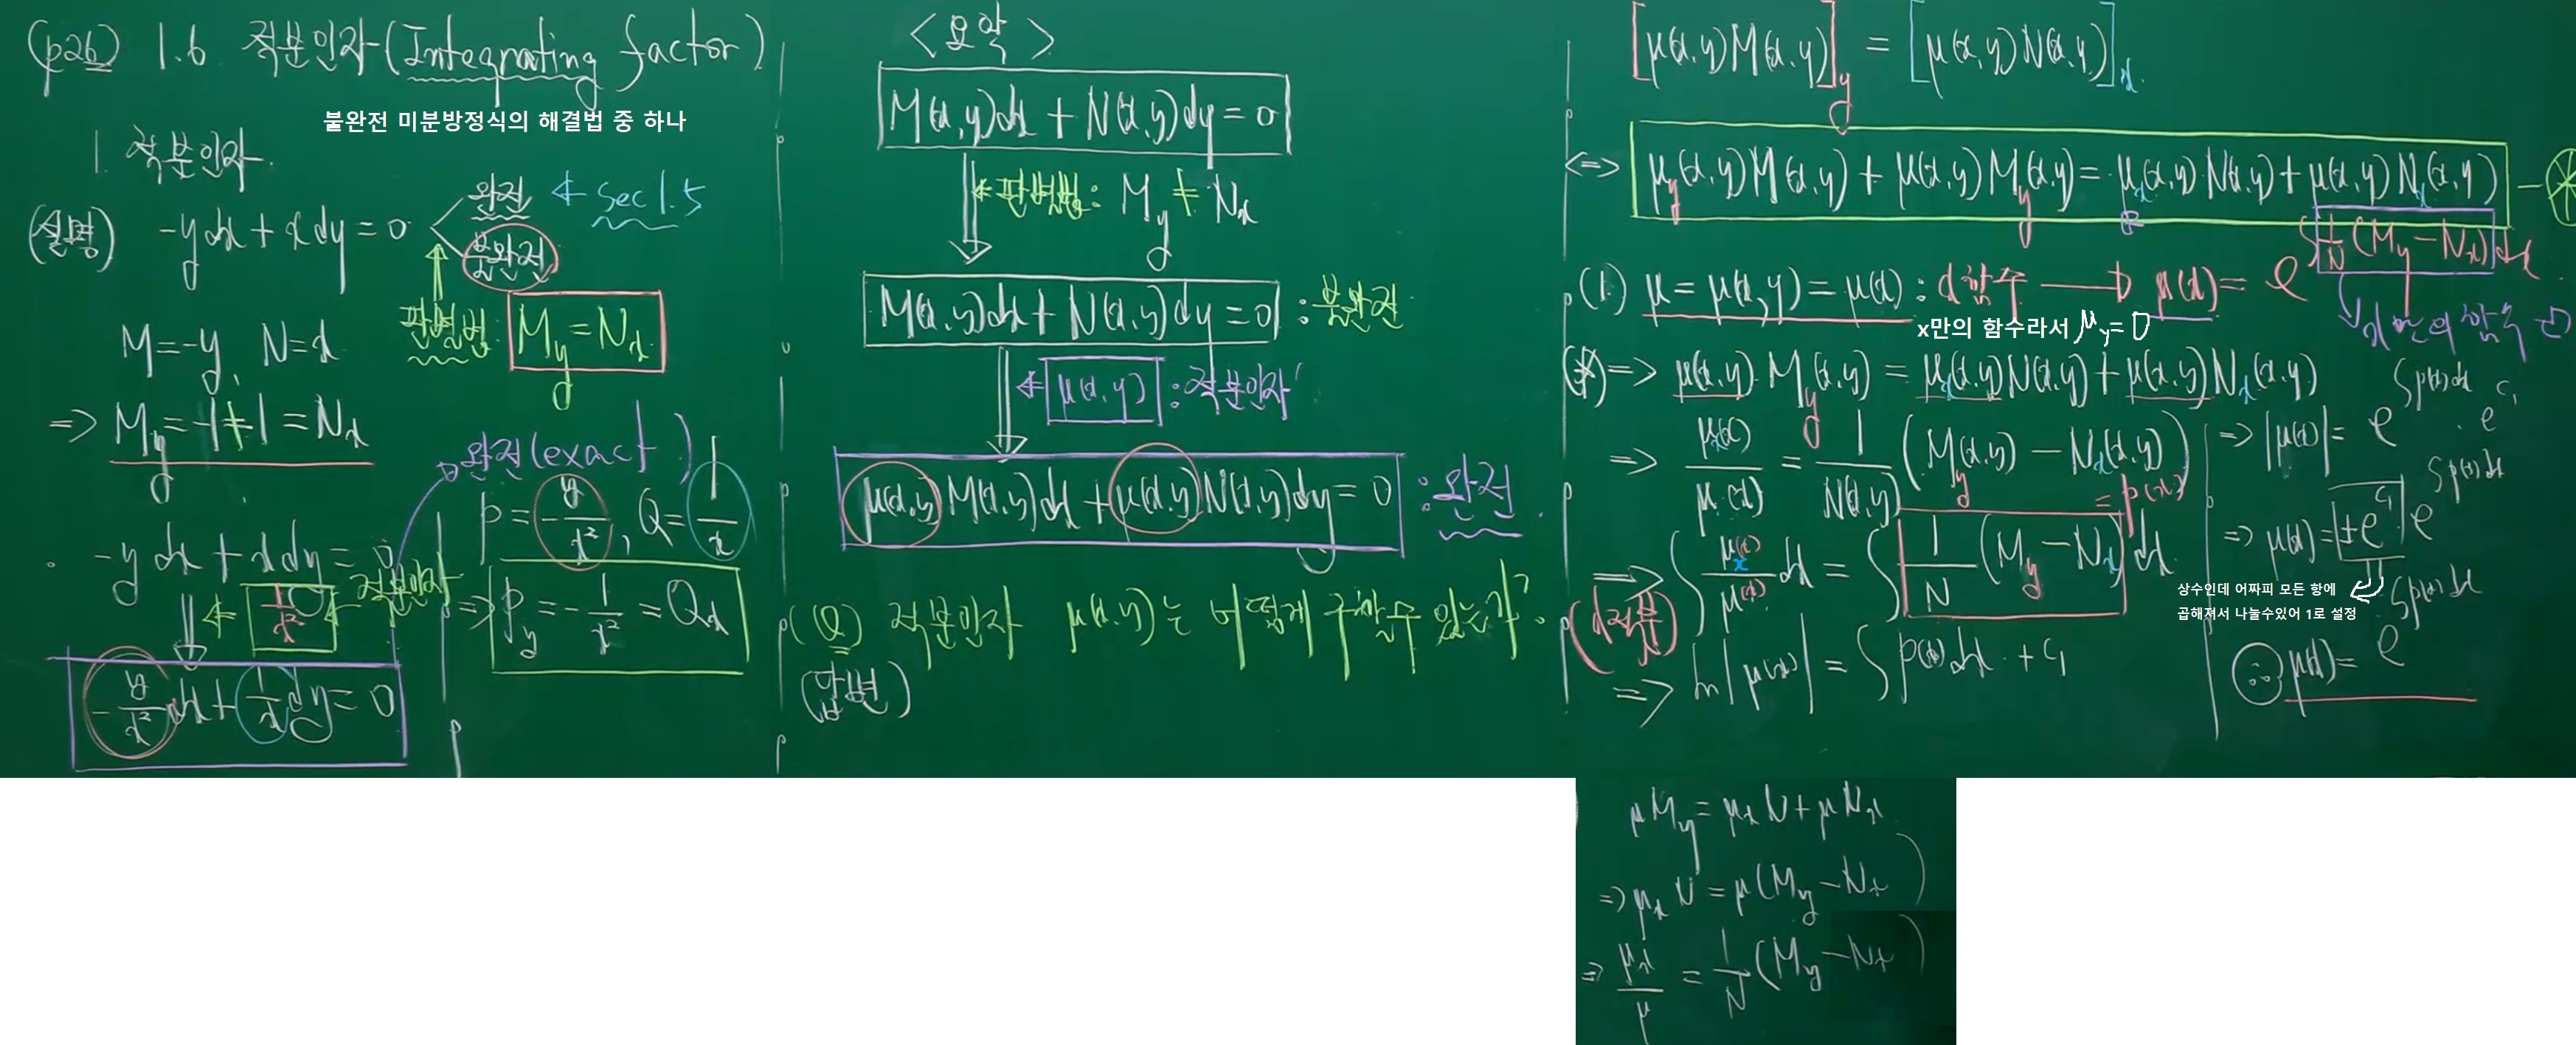 (p26) 1.6 적분인자 (Integrating factor)
불완전 미분방정식의 해결법 중 하나
1. 적분인자.
(설명) -ydx + xdy = 0
완전 ← Sec 1.5
불완전
판별법: M_y = N_x
M = -y, N = x
=> M_y = -1 ≠ 1 = N_x
-ydx + xdy = 0
← 1/x² ← 적분인자
-y/x² dx + 1/x dy = 0
완전 (exact)
P = -y/x², Q = 1/x
=> P_y = -1/x² = Q_x
<요약>
M(x,y)dx + N(x,y)dy = 0
← 판별법: M_y ≠ N_x
M(x,y)dx + N(x,y)dy = 0 : 불완전
← μ(x,y) : 적분인자
μ(x,y)M(x,y)dx + μ(x,y)N(x,y)dy = 0 : 완전
(Q) 적분인자 μ(x,y)는 어떻게 구할수 있는가?
(답변)
[μ(x,y)M(x,y)]_y = [μ(x,y)N(x,y)]_x
<=> μ_y(x,y)M(x,y) + μ(x,y)M_y(x,y) = μ_x(x,y)N(x,y) + μ(x,y)N_x(x,y) - ⊛
(1) μ = μ(x,y) = μ(x) : x함수 → μ(x) = e^{∫ 1/N (M_y - N_x)dx}
x만의 함수라서 μ_y = 0
x만의 함수
(*) => μ(x,y) M_y(x,y) = μ_x(x,y)N(x,y) + μ(x,y)N_x(x,y)
=> μ_x(x)/μ(x) = 1/N(x,y) (M_y(x,y) - N_x(x,y))
= p(x)
=> ∫ μ_x(x)/μ(x) dx = ∫ 1/N (M_y - N_x) dx
(x적분)
=> ln|μ(x)| = ∫p(x)dx + c₁
=> |μ(x)| = e^{∫p(x)dx} · e^{c₁}
=> μ(x) = ±e^{c₁} e^{∫p(x)dx}
상수인데 어짜피 모든 항에
곱해져서 나눌수있어 1로 설정
∴ μ(x) = e^{∫p(x)dx}
μM_y = μ_x N + μN_x
=> μ_x N = μ(M_y - N_x)
=> μ_x/μ = 1/N (M_y - N_x)